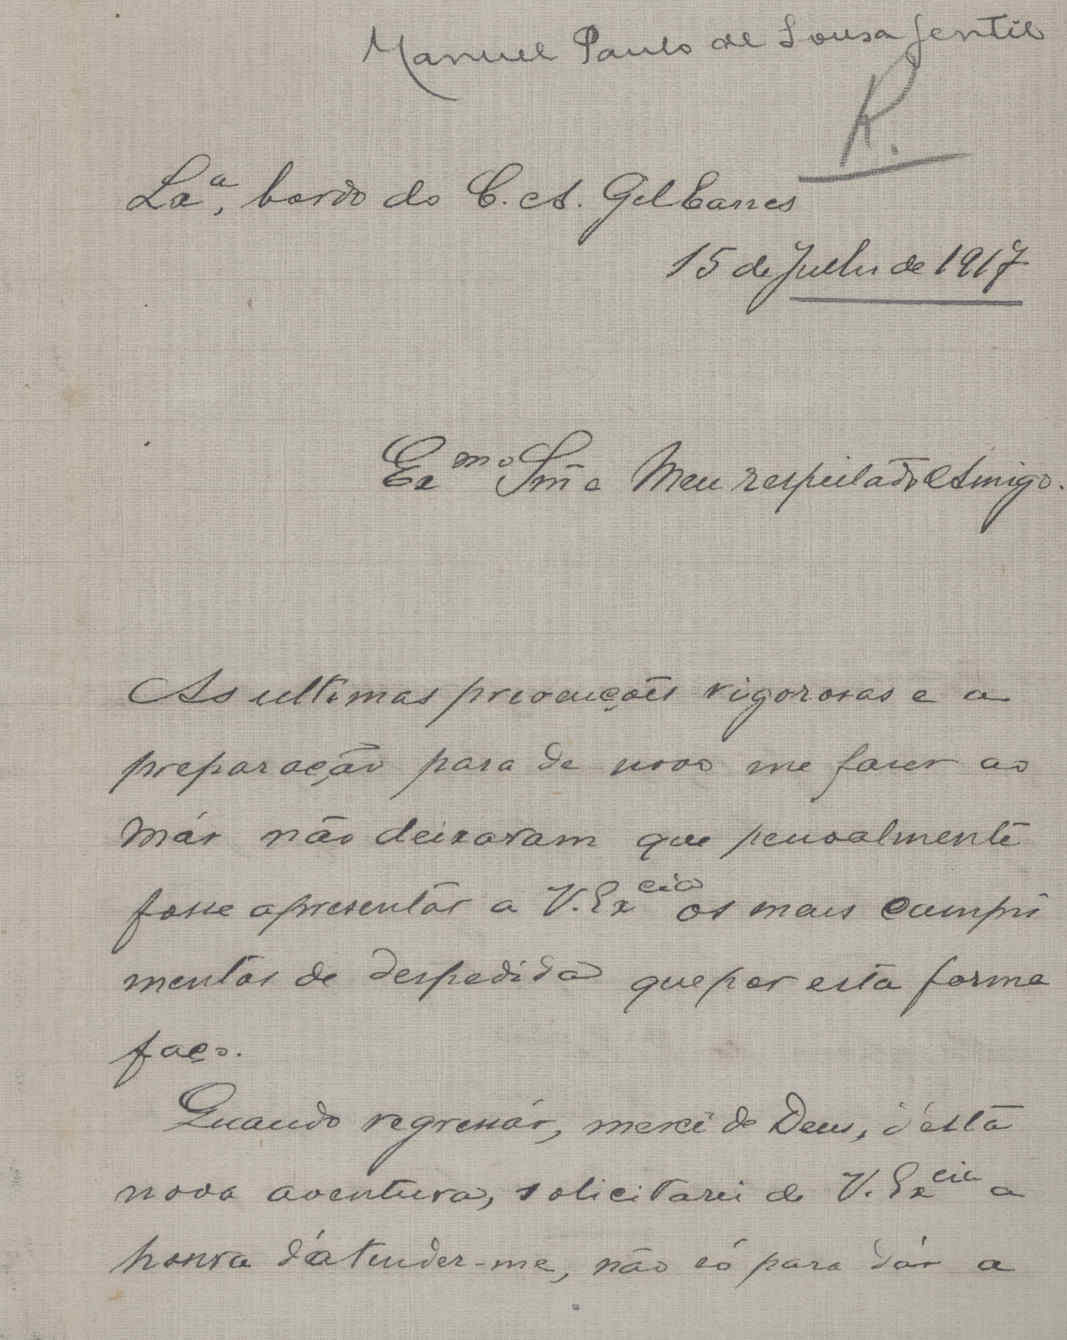 Manuel Paulo de Sousa Gentil
R.
Lxª, bordo do C. A. Gil Eannes
15 de Julho de 1917
Exmo Snr e Meu respeitado Amigo.
As ultimas precauções rigorosas e a
preparação para de novo me fazer ao
már não deixaram que pessoalmente
fosse apresentár a V. Excia os meus cumpri
mentos de despedida que por esta forma
faço.
Quando regressár, mercê de Deus, d'esta
nova aventura, solicitarei de V. Excia a
honra d'atender-me, não só para dár a